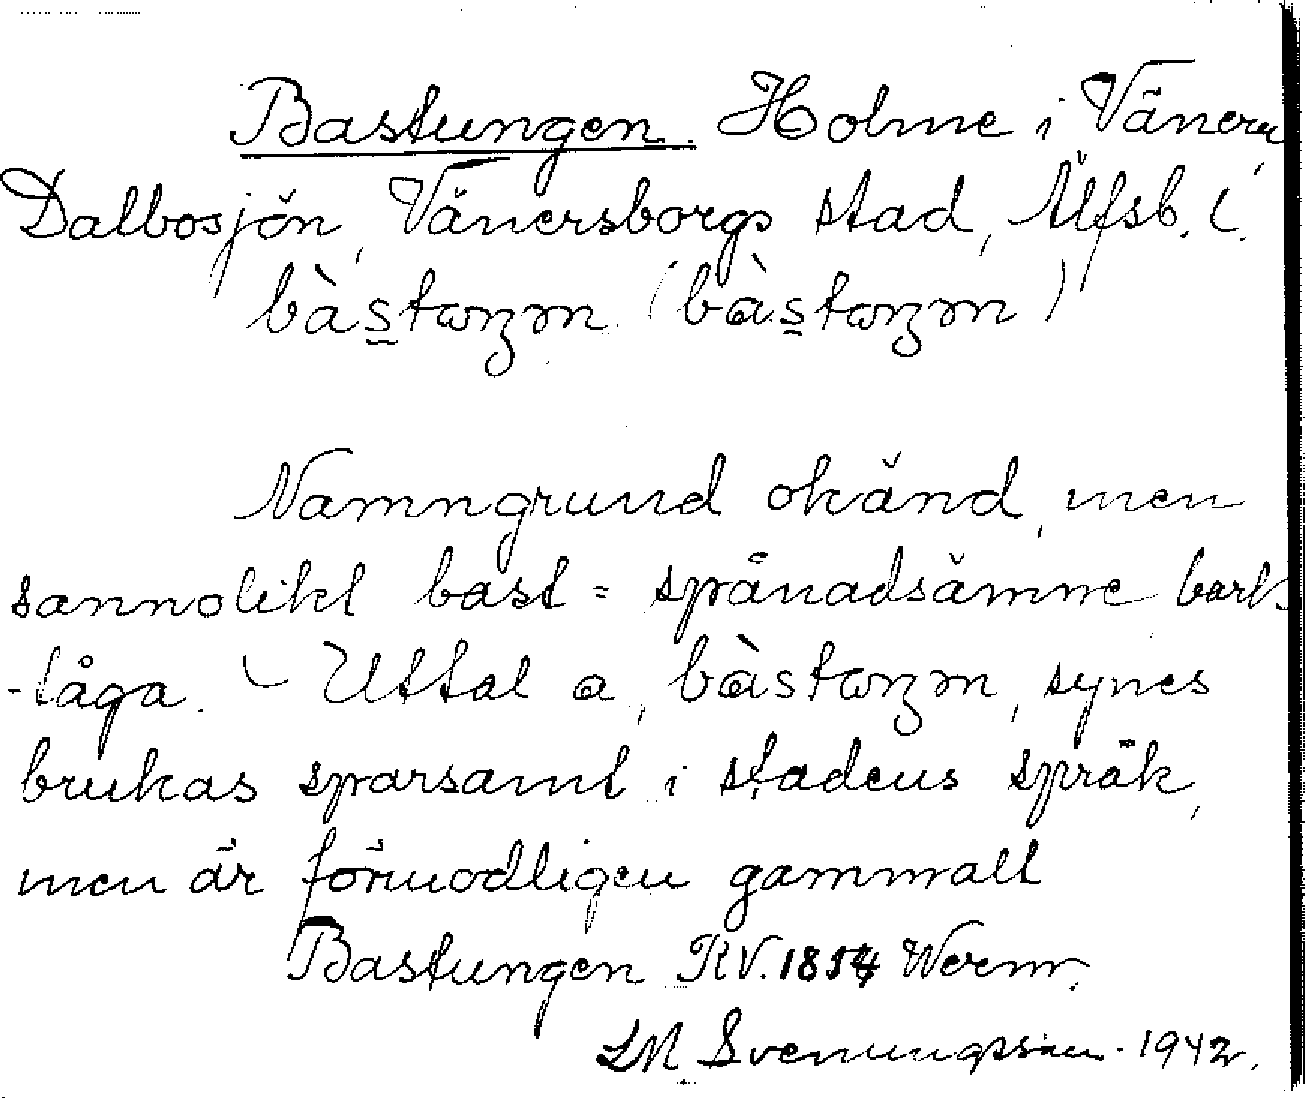 Bastungen. Holme i Vänern,
Dalbosjön, Vänersborgs stad, Älfsb. l.
bàs̲taŋən (bɑ̀s̲taŋən)
Namngrund okänd, men
sannolikt bast = spånadsämne bark
-tåga. – Uttal a, bɑ̀staŋən, synes
brukas sparsamt i stadens språk,
men är förmodligen gammalt
Bastungen RV. 1854 Werm.
LM Svenungsson 1942.